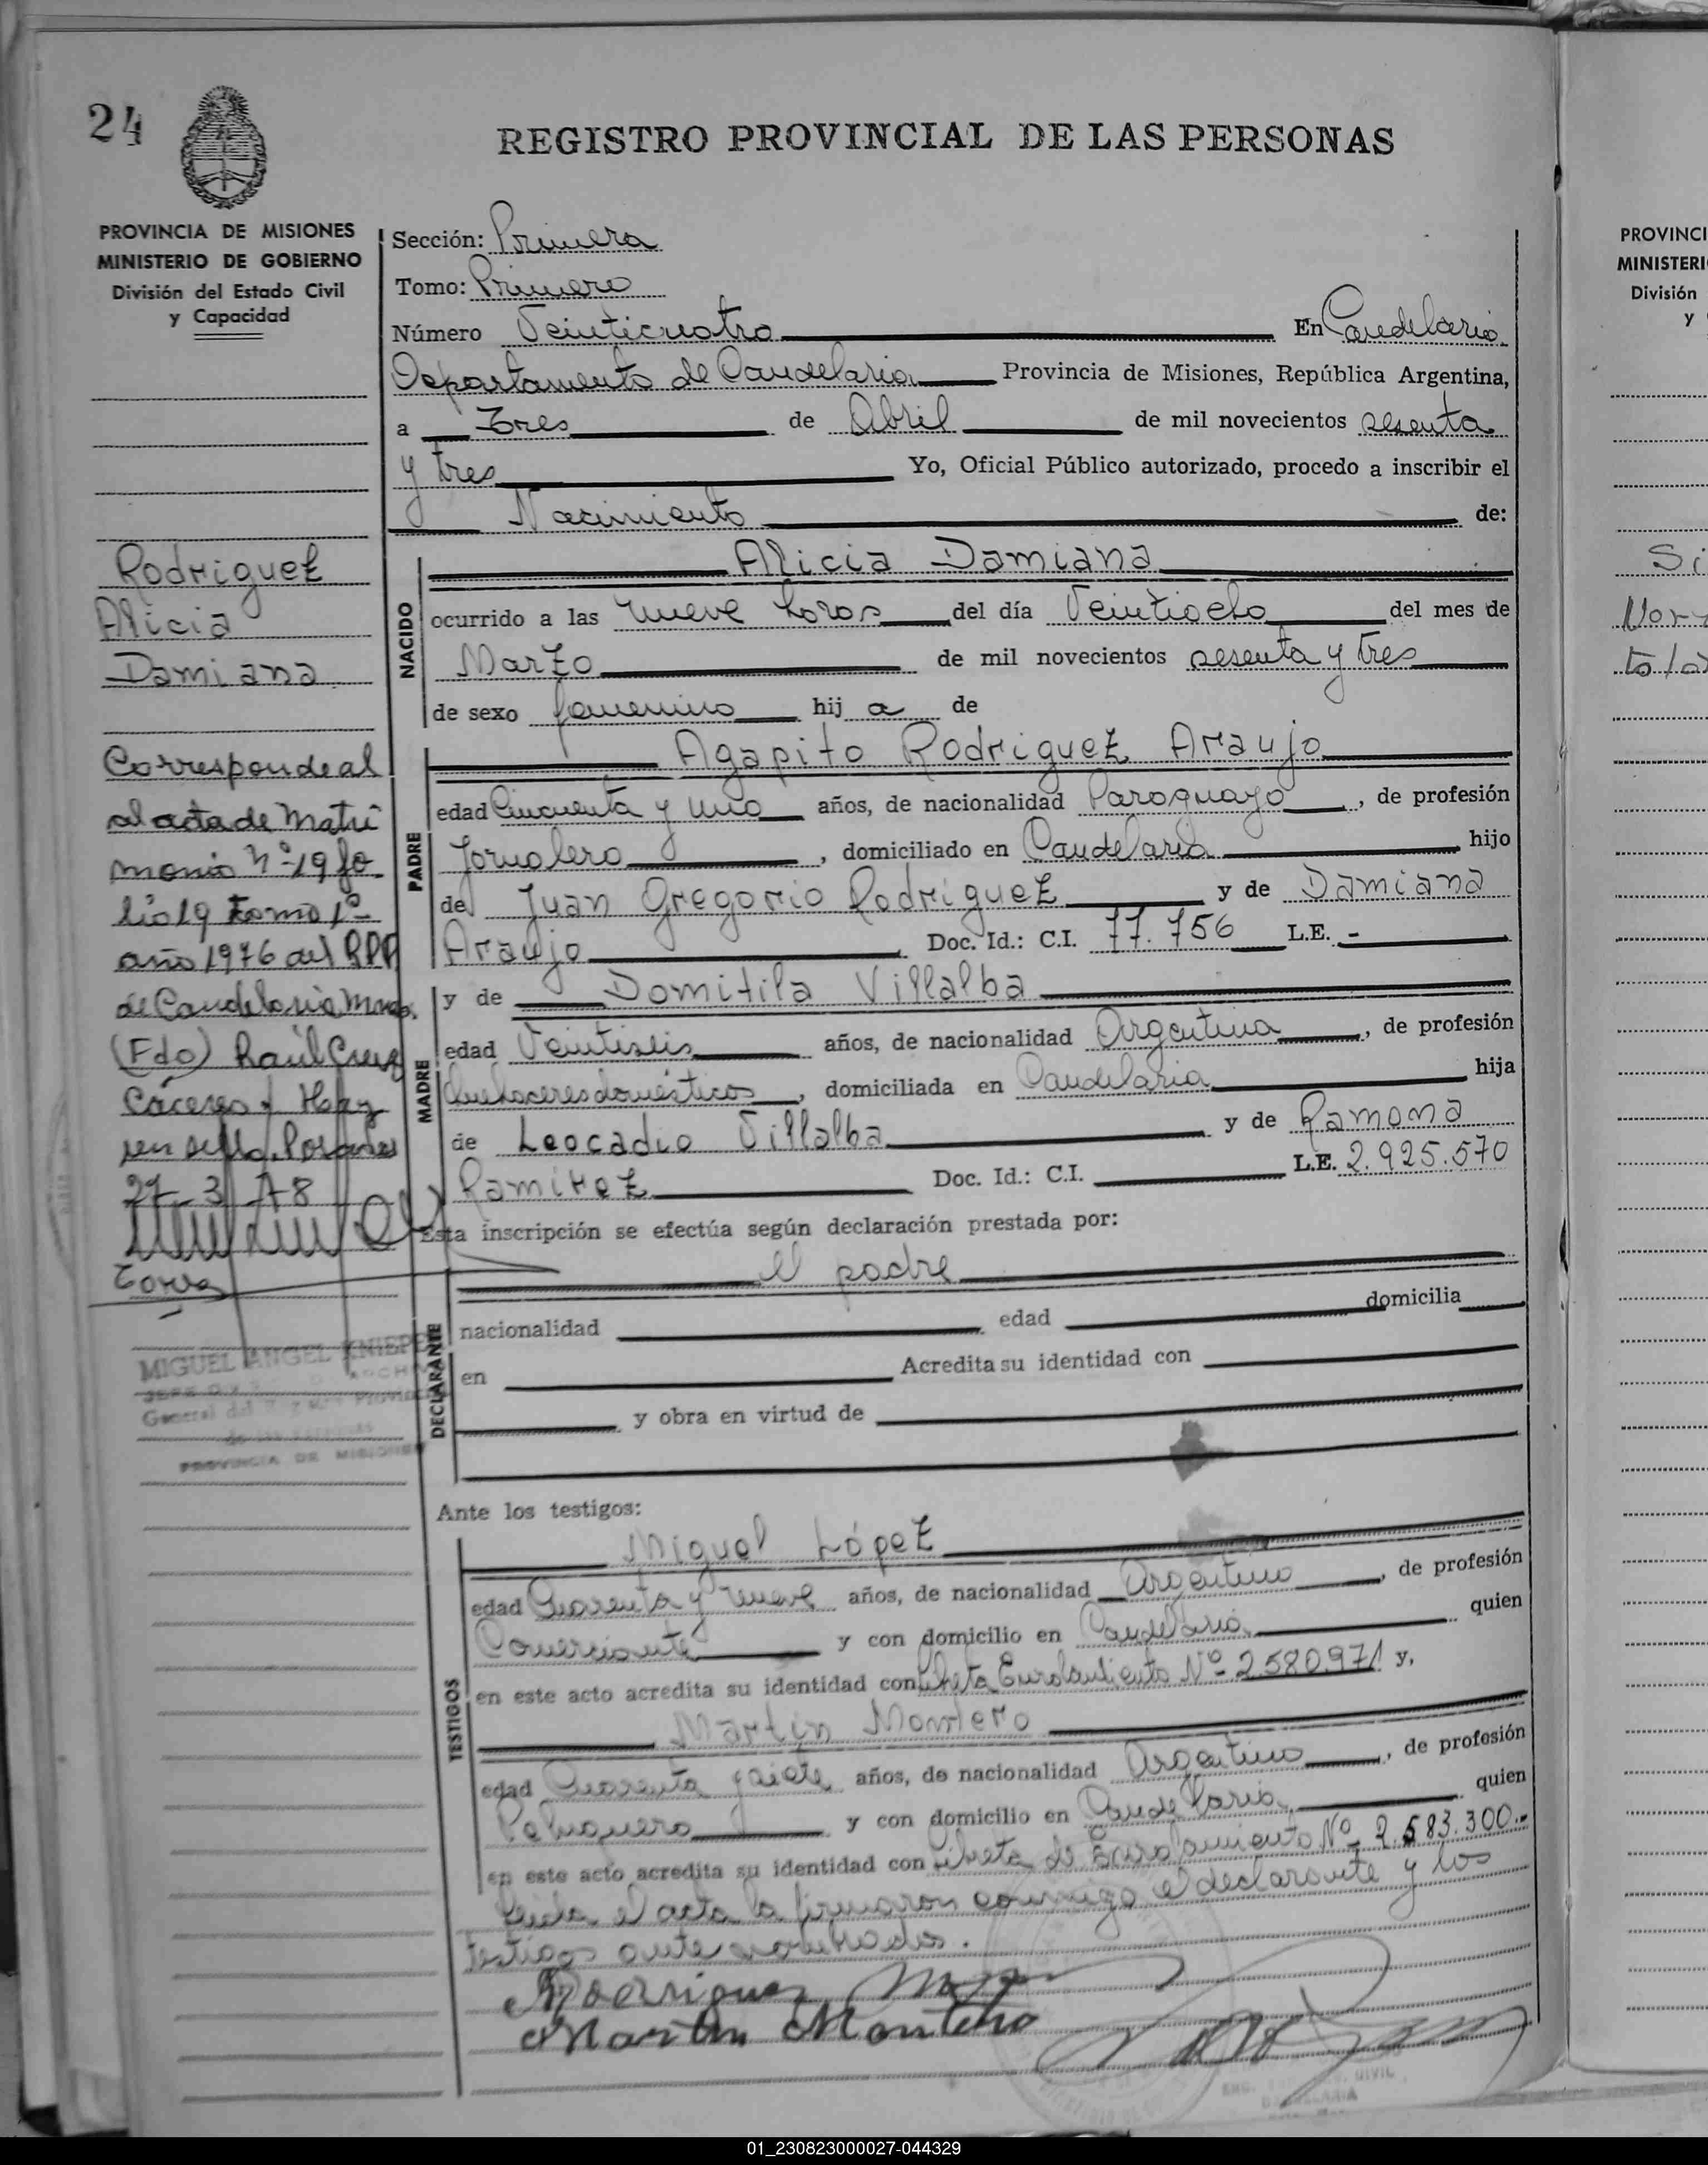 24
REGISTRO PROVINCIAL DE LAS PERSONAS
PROVINCIA DE MISIONES
MINISTERIO DE GOBIERNO
División del Estado Civil
y Capacidad
Sección: Primera
Tomo: Primero
Número Veinticuatro En Candelaria
Departamento de Candelaria Provincia de Misiones, República Argentina,
a Tres de Abril de mil novecientos sesenta
y tres Yo, Oficial Público autorizado, procedo a inscribir el
Nacimiento de:
Rodriguez
Alicia
Damiana
Corresponde al
al acta de Matri
monio Nº 19 fo
lio 19 tomo 1º
año 1976 del RPP
de Candelaria Mnes.
(Fdo) Raúl Cruz
Cáceres
27-3-78
MIGUEL ANGEL KNIEPP
General del
PROVINCIA DE MISIONES
NACIDO
Alicia Damiana
ocurrido a las nueve horas del día Veintiocho del mes de
Marzo de mil novecientos sesenta y tres
de sexo femenino hij a de
PADRE
Agapito Rodriguez Araujo
edad Cincuenta y uno años, de nacionalidad Paraguayo, de profesión
Jornalero, domiciliado en Candelaria hijo
de Juan Gregorio Rodriguez y de Damiana
Araujo Doc. Id.: C.I. 77.756 L.E. -
MADRE
y de Domitila Villalba
edad Veintiseis años, de nacionalidad Argentina, de profesión
Quehaceres domésticos, domiciliada en Candelaria hija
de Leocadio Villalba y de Ramona
Ramirez Doc. Id.: C.I. L.E. 2.925.570
Esta inscripción se efectúa según declaración prestada por:
DECLARANTE
el padre
nacionalidad edad domicilia
en Acredita su identidad con
y obra en virtud de
Ante los testigos:
TESTIGOS
Miguel López
edad Cuarenta y nueve años, de nacionalidad Argentino, de profesión
Comerciante y con domicilio en Candelaria quien
en este acto acredita su identidad con Libreta Enrolamiento Nº 2.580.971 y,
Martin Montero
edad Cuarenta y siete años, de nacionalidad Argentino, de profesión
Peluquero y con domicilio en Candelaria, quien
en este acto acredita su identidad con Libreta de Enrolamiento Nº 2.583.300.-
Leida el acta la firmaron conmigo el declarante y los
testigos ante nombrados.
Rodriguez
Martin Montero
PROVINCI
MINISTERI
División
y
Si
01_230823000027-044329